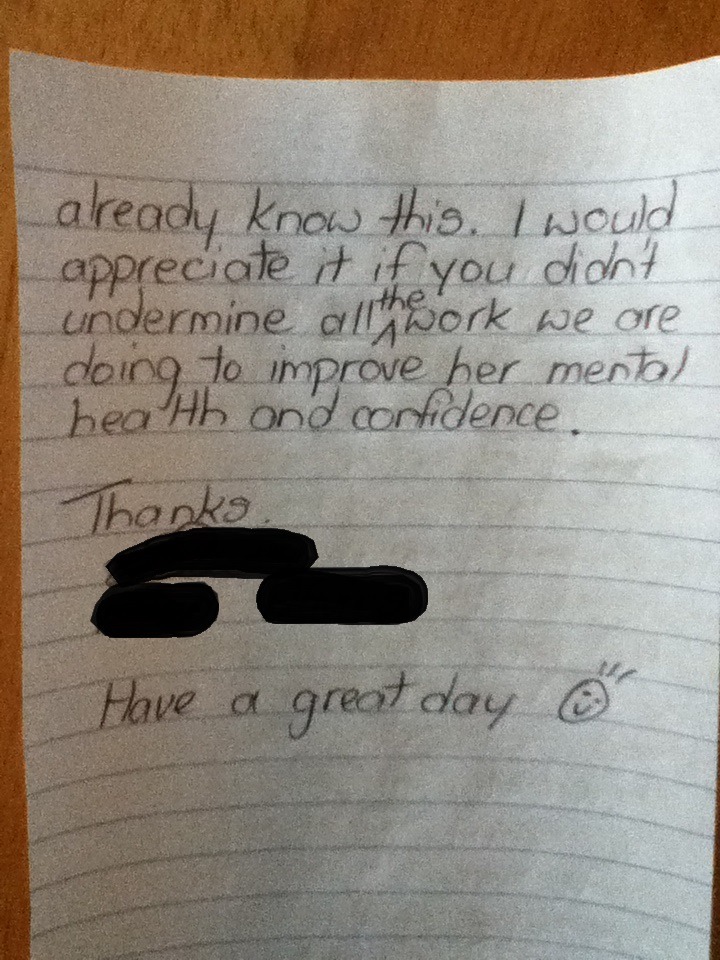 already know this. I would
appreciate it if you didn't
undermine all the work we are
doing to improve her mental
health and confidence.
Thanks.
Have a great day